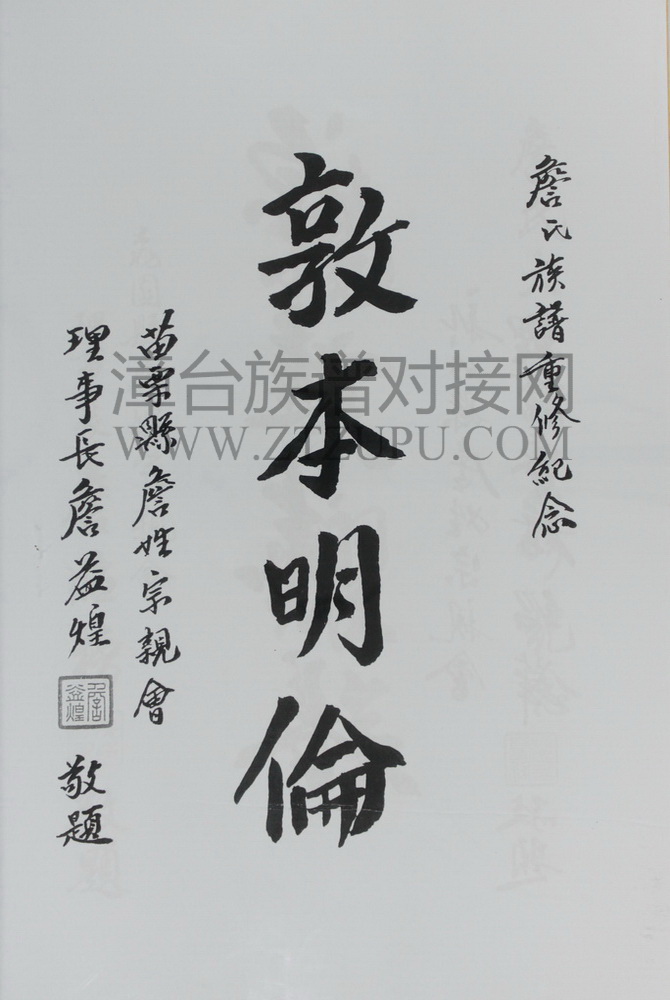 詹氏族譜重修紀念
敦本明倫
苗栗縣詹姓宗親會
理事長詹益煌
詹益煌
敬題
漳台族谱对接网
WWW.ZTZUPU.COM